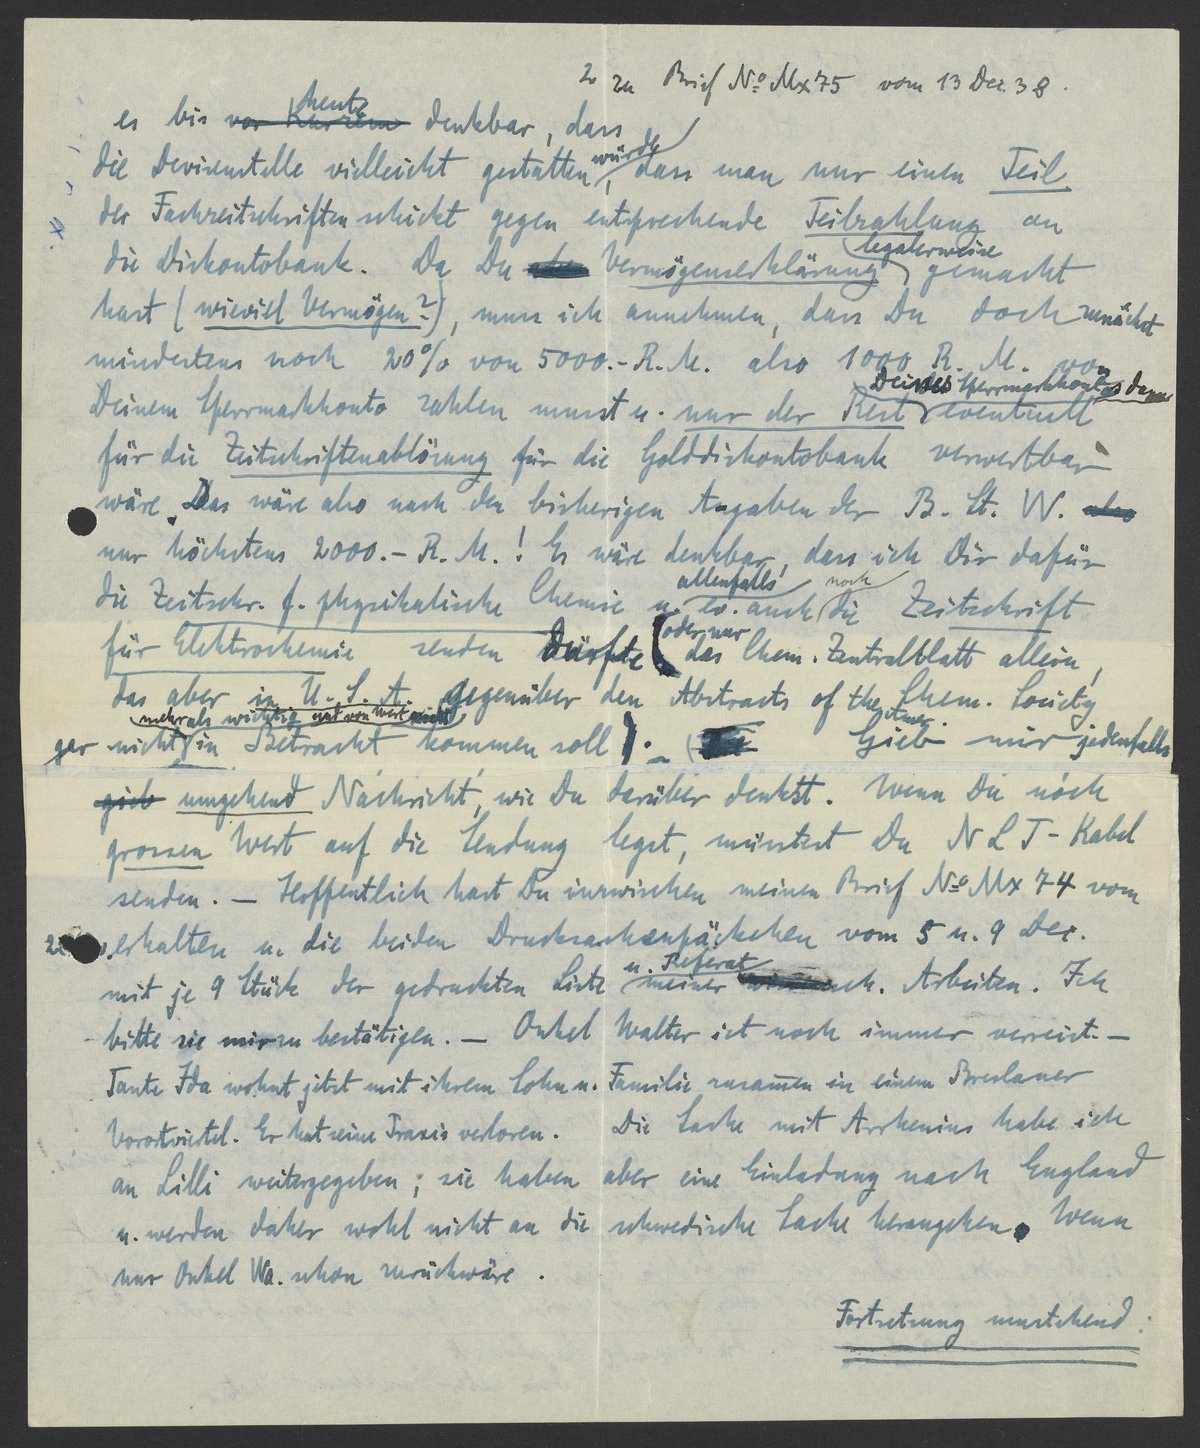 2 zu Brief No Mx 75 vom 13 Dez. 38.
es bis vor Kurzem heute denkbar, dass
die Devisenstelle vielleicht gestatten würde, dass man nur einen Teil
der Fachzeitschriften schickt gegen entsprechende Teilzahlung an
die Diskontobank. Da Du Vermögenserklärung legalerweise gemacht
hast (wieviel Vermögen?), muss ich annehmen, dass Du doch zunächst
mindestens noch 20% von 5000.- R.M. also 1000 R.M. von
Deinem Sperrmarkkonto zahlen musst u. nur der Rest Deines Sperrmarkkontos dann eventuell
für die Zeitschriftenablösung für die Golddiskontobank verwertbar
wäre. Das wäre also nach den bisherigen Angaben der B. St. W. also
nur höchstens 2000.- R.M.! Es wäre denkbar, dass ich Dir dafür
die Zeitschr. f. physikalische Chemie u. ev. allenfalls auch noch die Zeitschrift
für Elektrochemie senden dürfte (oder nur das Chem. Zentralblatt allein,
das aber in U.S.A. gegenüber den Abstracts of the Chem. Society
gar nicht mehr als wichtig und von Wert in Betracht kommen soll). Gieb mir jedenfalls
gieb umgehend Nachricht, wie Du darüber denkst. Wenn Du noch
grossen Wert auf die Sendung legst, müsstest Du NLT-Kabel
senden. — Hoffentlich hast Du inzwischen meinen Brief No Mx 74 vom
erhalten u. die beiden Drucksachenpäckchen vom 5 u. 9 Dez.
mit je 9 Stück der gedruckten Liste u. Referat meiner Arbeiten. Ich
bitte sie mir zu bestätigen. — Onkel Walter ist noch immer verreist. —
Tante Ida wohnt jetzt mit ihrem Sohn u. Familie zusammen in einem Breslauer
Vorortviertel. Er hat seine Praxis verloren. Die Sache mit Arrhenius habe ich
an Lilli weitergegeben; sie haben aber eine Einladung nach England
u. werden daher wohl nicht an die schwedische Sache herangehen. Wenn
nur Onkel Wa. schon zurück wäre.
Fortsetzung umstehend: